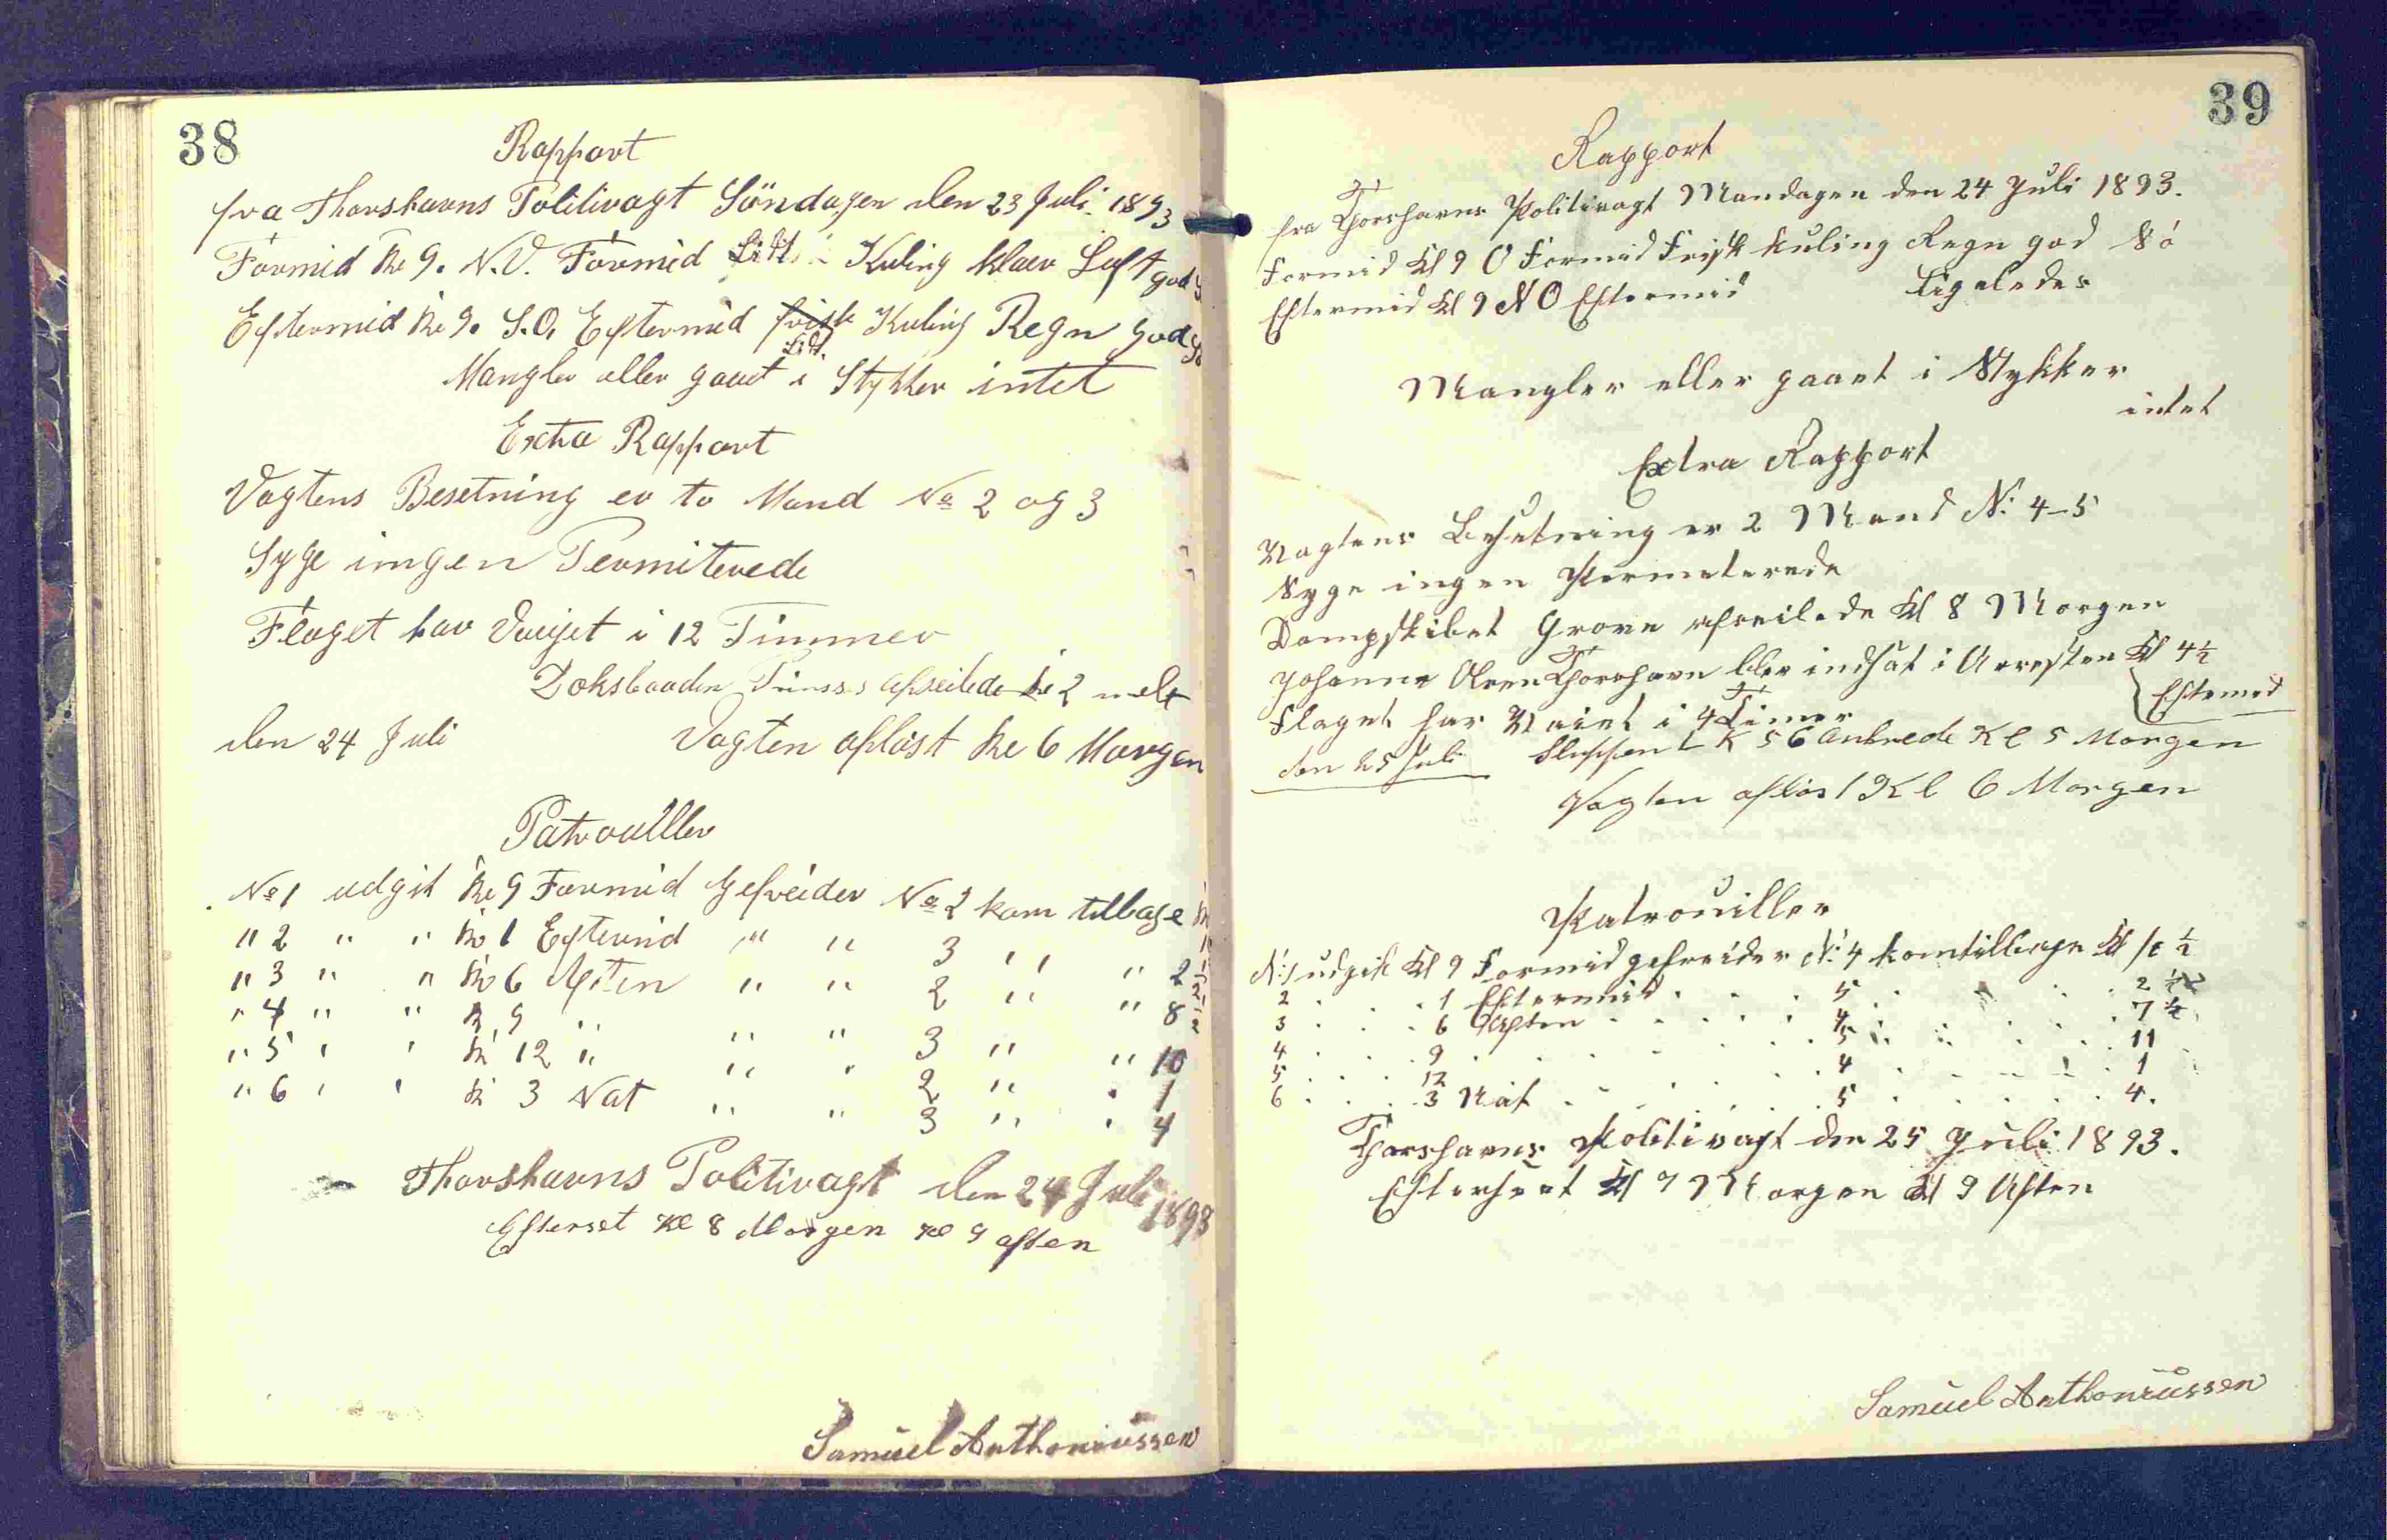 38
Rapport
fra Thorshavns Politivagt Söndagen den 23 Juli 1893
Formid Kl 9. N.V. Formid Lidt Kuling klar Luft god
Eftermid Kl 9. S.O. Eftermid frisk Kuling Regn god
Lidt
Mangler eller gaaet i Stykker intet
Extra Rapport
Vagtens Besetning er to Mand No 2 og 3
Syge ingen Permiterede
Flaget har Vaijet i 12 Timmer
afseilede Kl 2
den 24 Juli Vagten aflöst Kl 6 Morgen
Patrouller
No 1 udgik Kl 9 Formid Gefreider No 2 kom tilbage
" 2 " " Kl 1 Eftermid " " 3 " " 2
" 3 " " Kl 6 Aften " " 2 " " 8
" 4 " " Kl 9 " " " 3 " " 10
" 5 " " Kl 12 " " " 2 " " 1
" 6 " " Kl 3 Nat " " 3 " " 4
Thorshavns Politivagt den 24 Juli 1893
Efterset Kl 8 Morgen Kl 9 aften
Samuel Anthoniussen
39
Rapport
fra Thorshavns Politivagt Mandagen den 24 Juli 1893.
Formid Kl 9 O Formid Frisk Kuling Regn god Sö
Eftermid Kl 9 NO Eftermid Ligeledes
Mangler eller gaaet i Stykker
intet
Extra Rapport
Vagtens Besetning er 2 Mand N: 4-5
Syge ingen Permeterede
Dampskibet Grove afseilede Kl 8 Morgen
Johanne Olsen Thorshavn blev indsat i Arresten Kl 4½
Eftemed
Flaget har Vaiet i 4 Timer
den 25 Juli Sluppen L K 56 Ankrede Kl 5 Morgen
Vagten aflöst Kl 6 Morgen
Patrouiller
N: 1 udgik Kl 9 Formid gefreider N: 4 kom tilbage Kl 10 ½
2 . . . 1 Eftermid . . . 5 . . . 2 ½
3 . . . 6 Aften . . . 4 . . . 7 ½
4 . . . 9 . . . 5 . . . 11
5 . . . 12 . . . 4 . . . 1
6 . . . 3 Nat . . . 5 . . . 4.
Thorshavns Politivagt den 25 Juli 1893.
Efterseet Kl 7 Morgen Kl 9 Aften
Samuel Anthoniussen